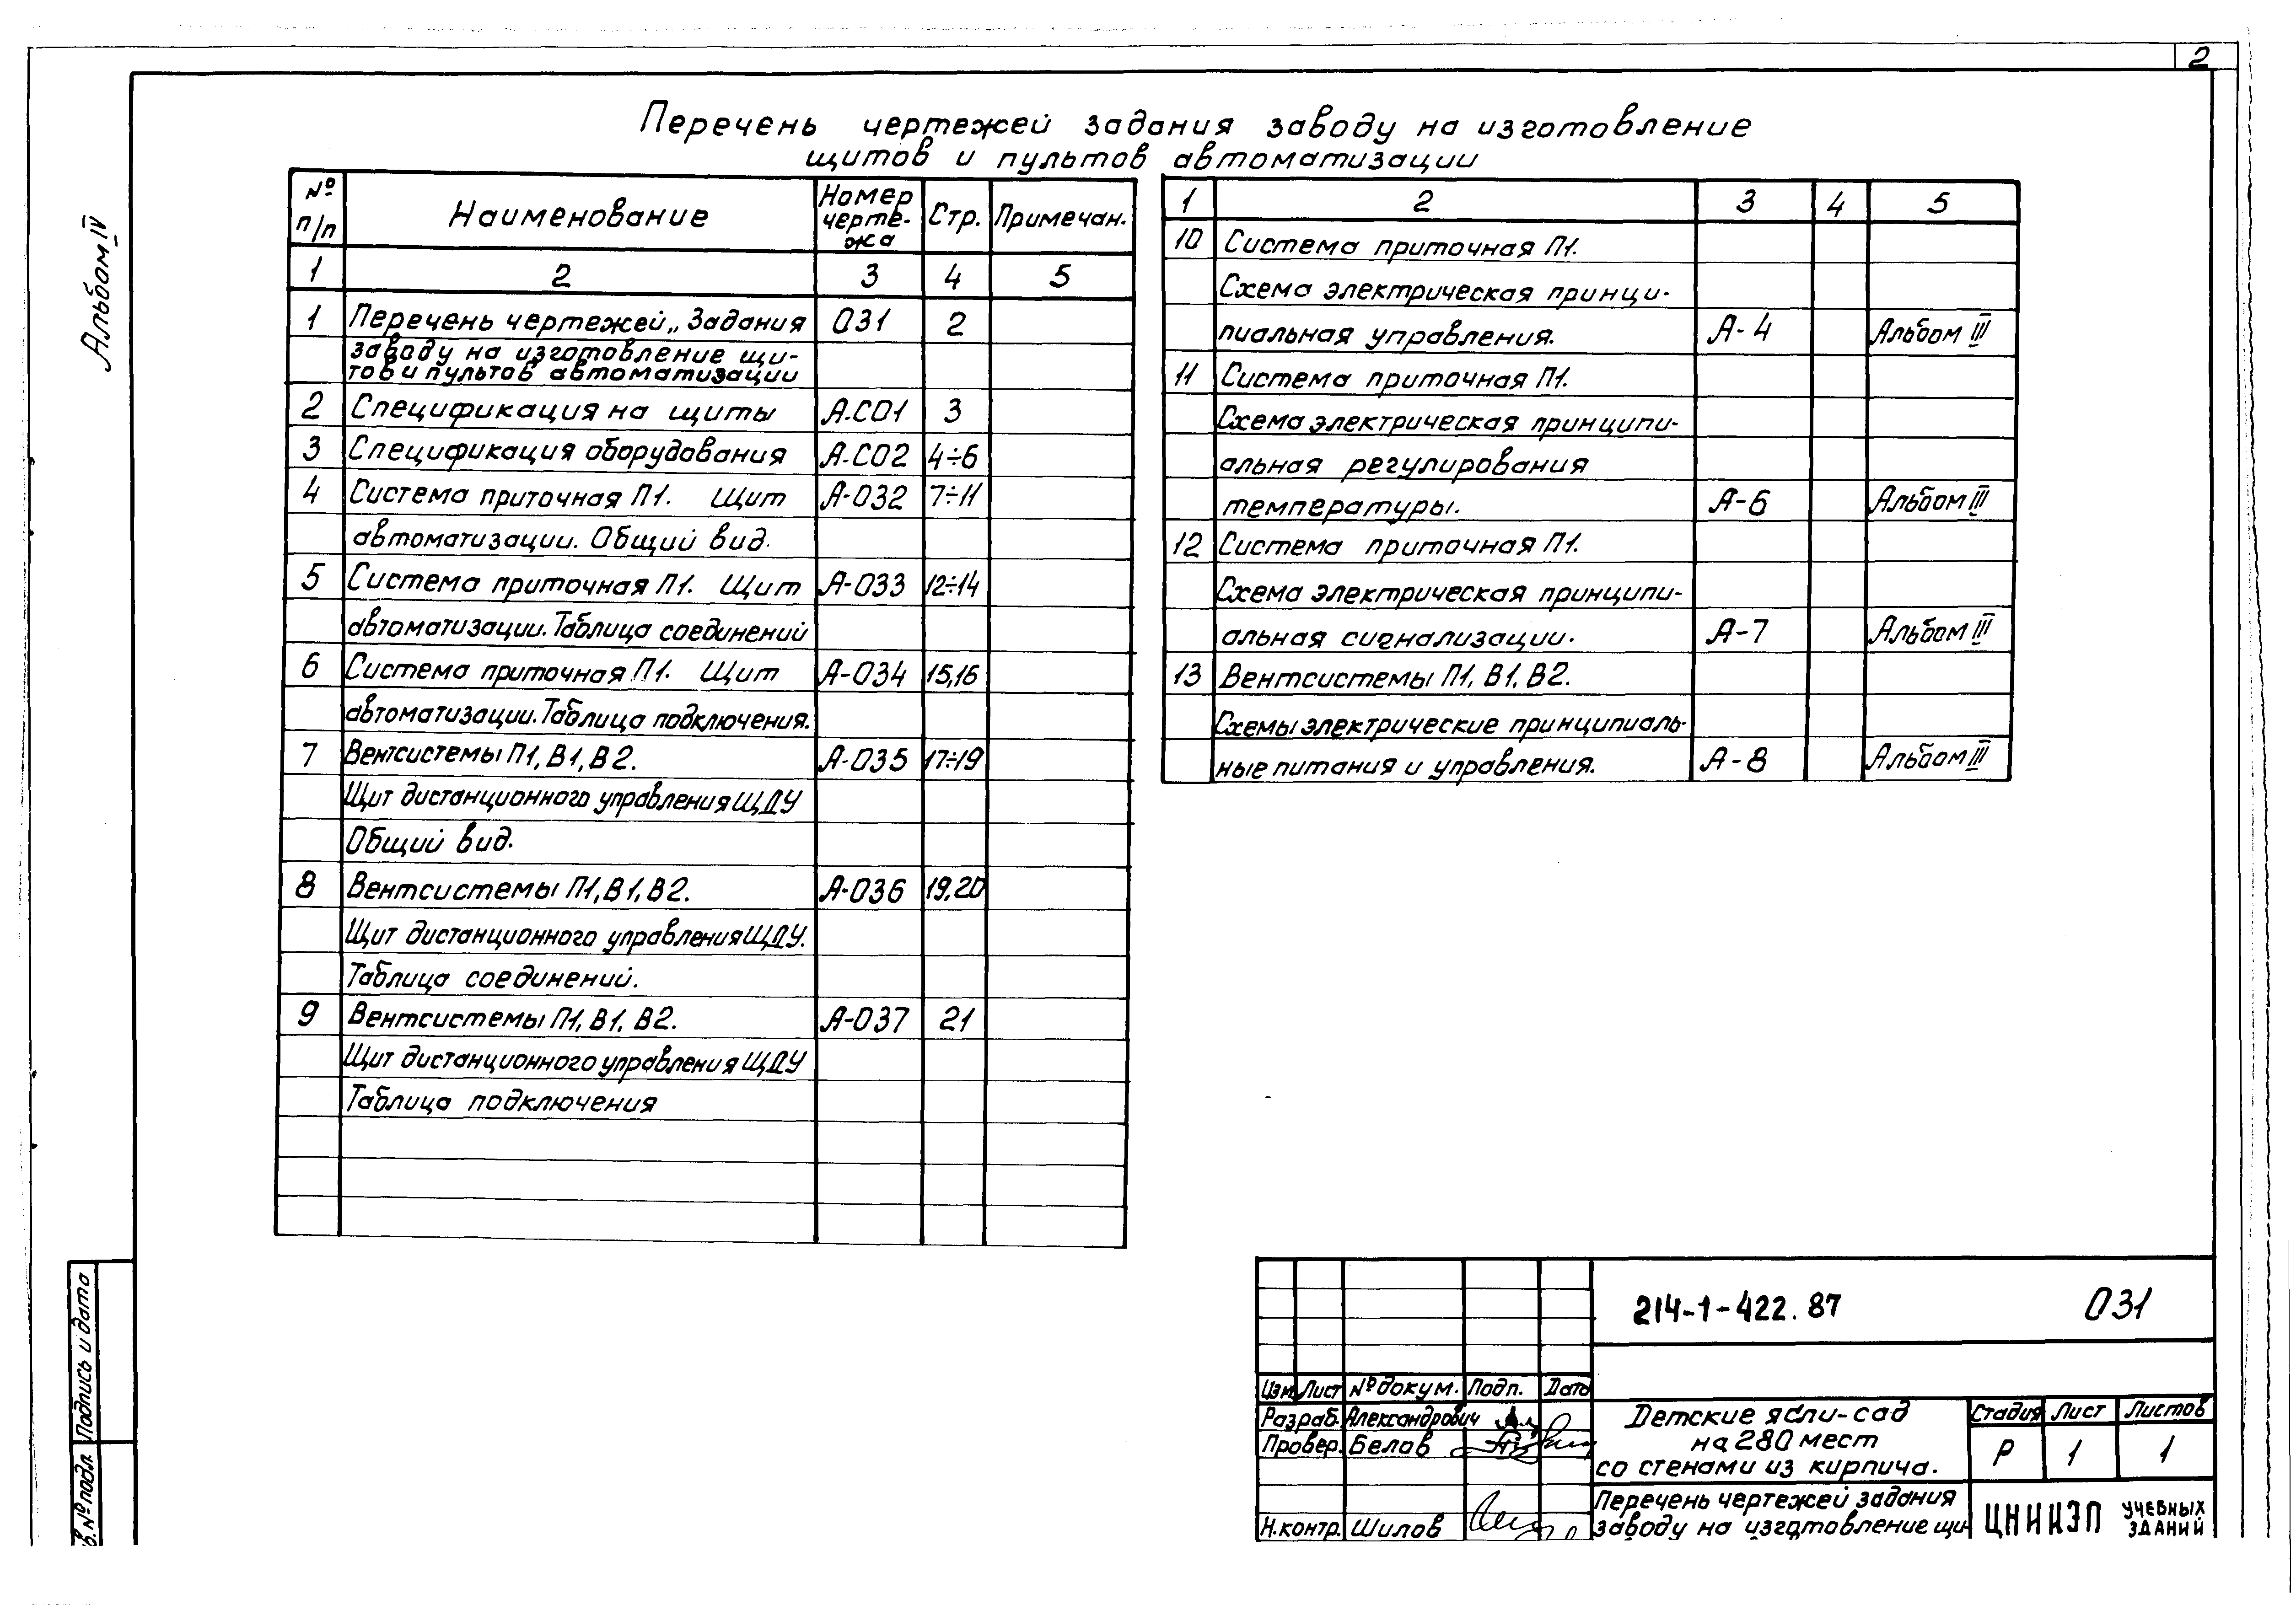 2
Альбом IV
Перечень чертежей задания заводу на изготовление
щитов и пультов автоматизации
№ п/п Наименование Номер черте-жа Стр. Примечан.
1 2 3 4 5
1 Перечень чертежей „Задания 031 2
заводу на изготовление щи-
тов и пультов автоматизации
2 Спецификация на щиты А.СО1 3
3 Спецификация оборудования А.СО2 4÷6
4 Система приточная П1. Щит А-032 7÷11
автоматизации. Общий вид.
5 Система приточная П1. Щит А-033 12÷14
автоматизации. Таблица соединений
6 Система приточная П1. Щит А-034 15,16
автоматизации. Таблица подключения.
7 Вентсистемы П1, В1, В2. А-035 17÷19
Щит дистанционного управления ЩДУ
Общий вид.
8 Вентсистемы П1, В1, В2. А-036 19,20
Щит дистанционного управления ЩДУ.
Таблица соединений.
9 Вентсистемы П1, В1, В2. А-037 21
Щит дистанционного управления ЩДУ
Таблица подключения
1 2 3 4 5
10 Система приточная П1.
Схема электрическая принци-
пиальная управления. А-4 Альбом III
11 Система приточная П1.
Схема электрическая принципи-
альная регулирования
температуры. А-6 Альбом III
12 Система приточная П1.
Схема электрическая принципи-
альная сигнализации. А-7 Альбом III
13 Вентсистемы П1, В1, В2.
Схемы электрические принципиаль-
ные питания и управления. А-8 Альбом III
Подпись и дата
в. № подл.
214-1-422.87 031
Изм. Лист № докум. Подп. Дата
Разраб. Александрович
Провер. Белов
Н.контр. Шилов
Детские ясли-сад
на 280 мест
со стенами из кирпича.
Стадия Лист Листов
Р 1 1
Перечень чертежей задания
заводу на изготовление щи
ЦНИИЭП УЧЕБНЫХ ЗДАНИЙ